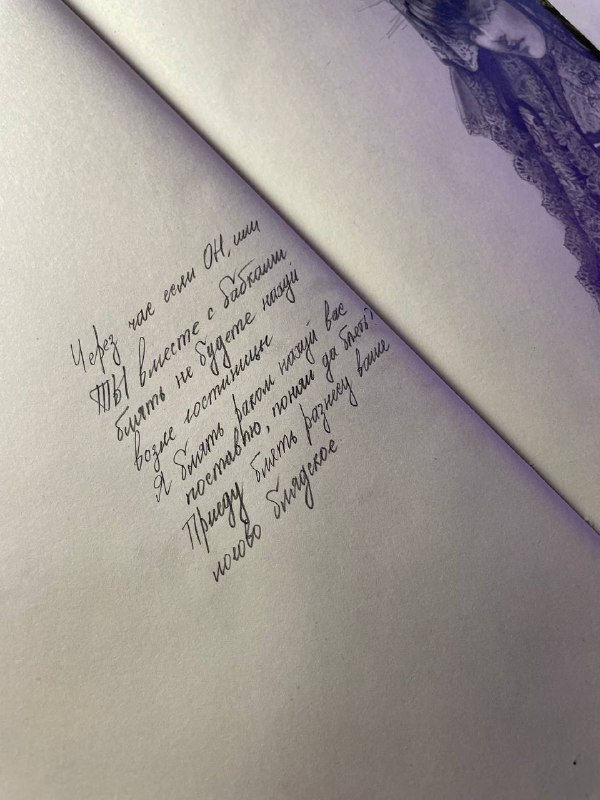 Через час если ОН, или
ТЫ вместе с бабками
блять не будете нахуй
возле гостиницы
Я блять раком нахуй вас
поставлю, понял да блеть?
Приеду блять разнесу ваше
логово блядское.